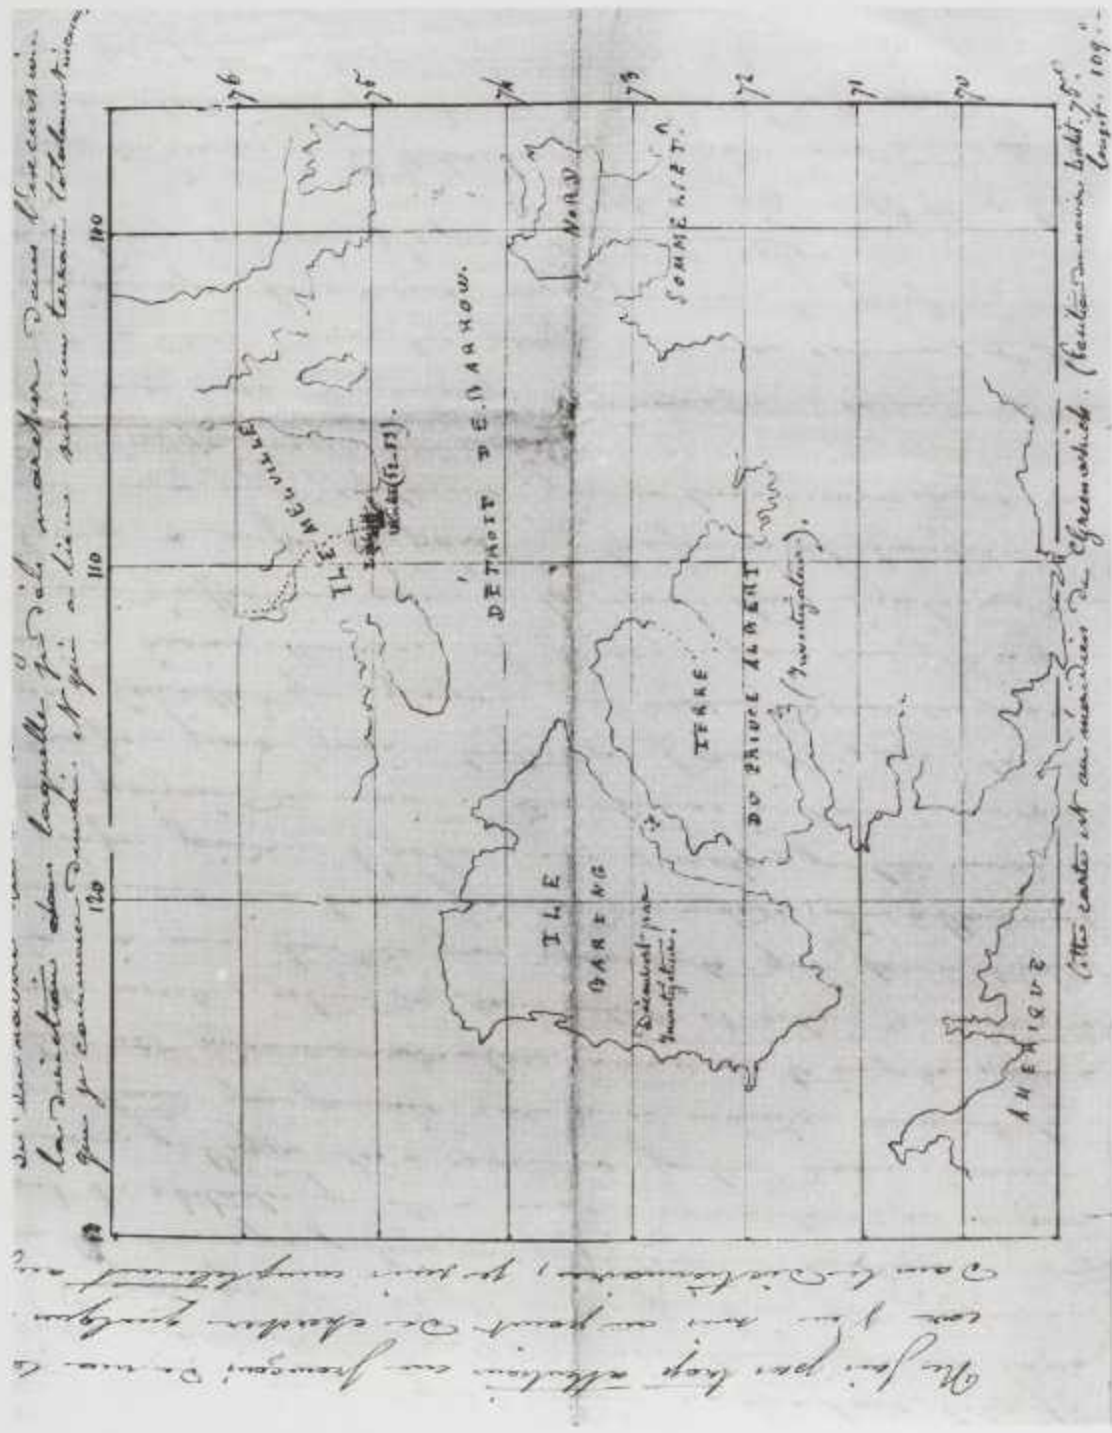 la direction dans laquelle je dois marcher dans l'excursion
que je commence demain et qui a lieu sur un terrain totalement inconnu
130
120
110
110
76
75
74
73
72
71
70
ILE MELVILLE
(52-53).
DÉTROIT DE BARROW.
NORD
SOMMERSET.
ILE
BARING
Découvert par
Investigator.
TERRE
DU PRINCE ALBERT
(Investigator).
AMERIQUE
Cette carte est au méridien de Greenwich. (Position du navire Latit. 75°
Longit. 109°
Ne fais pas trop attention au français de ma
car j'en suis au point de chercher quelques
dans le dictionnaire, je suis complètement